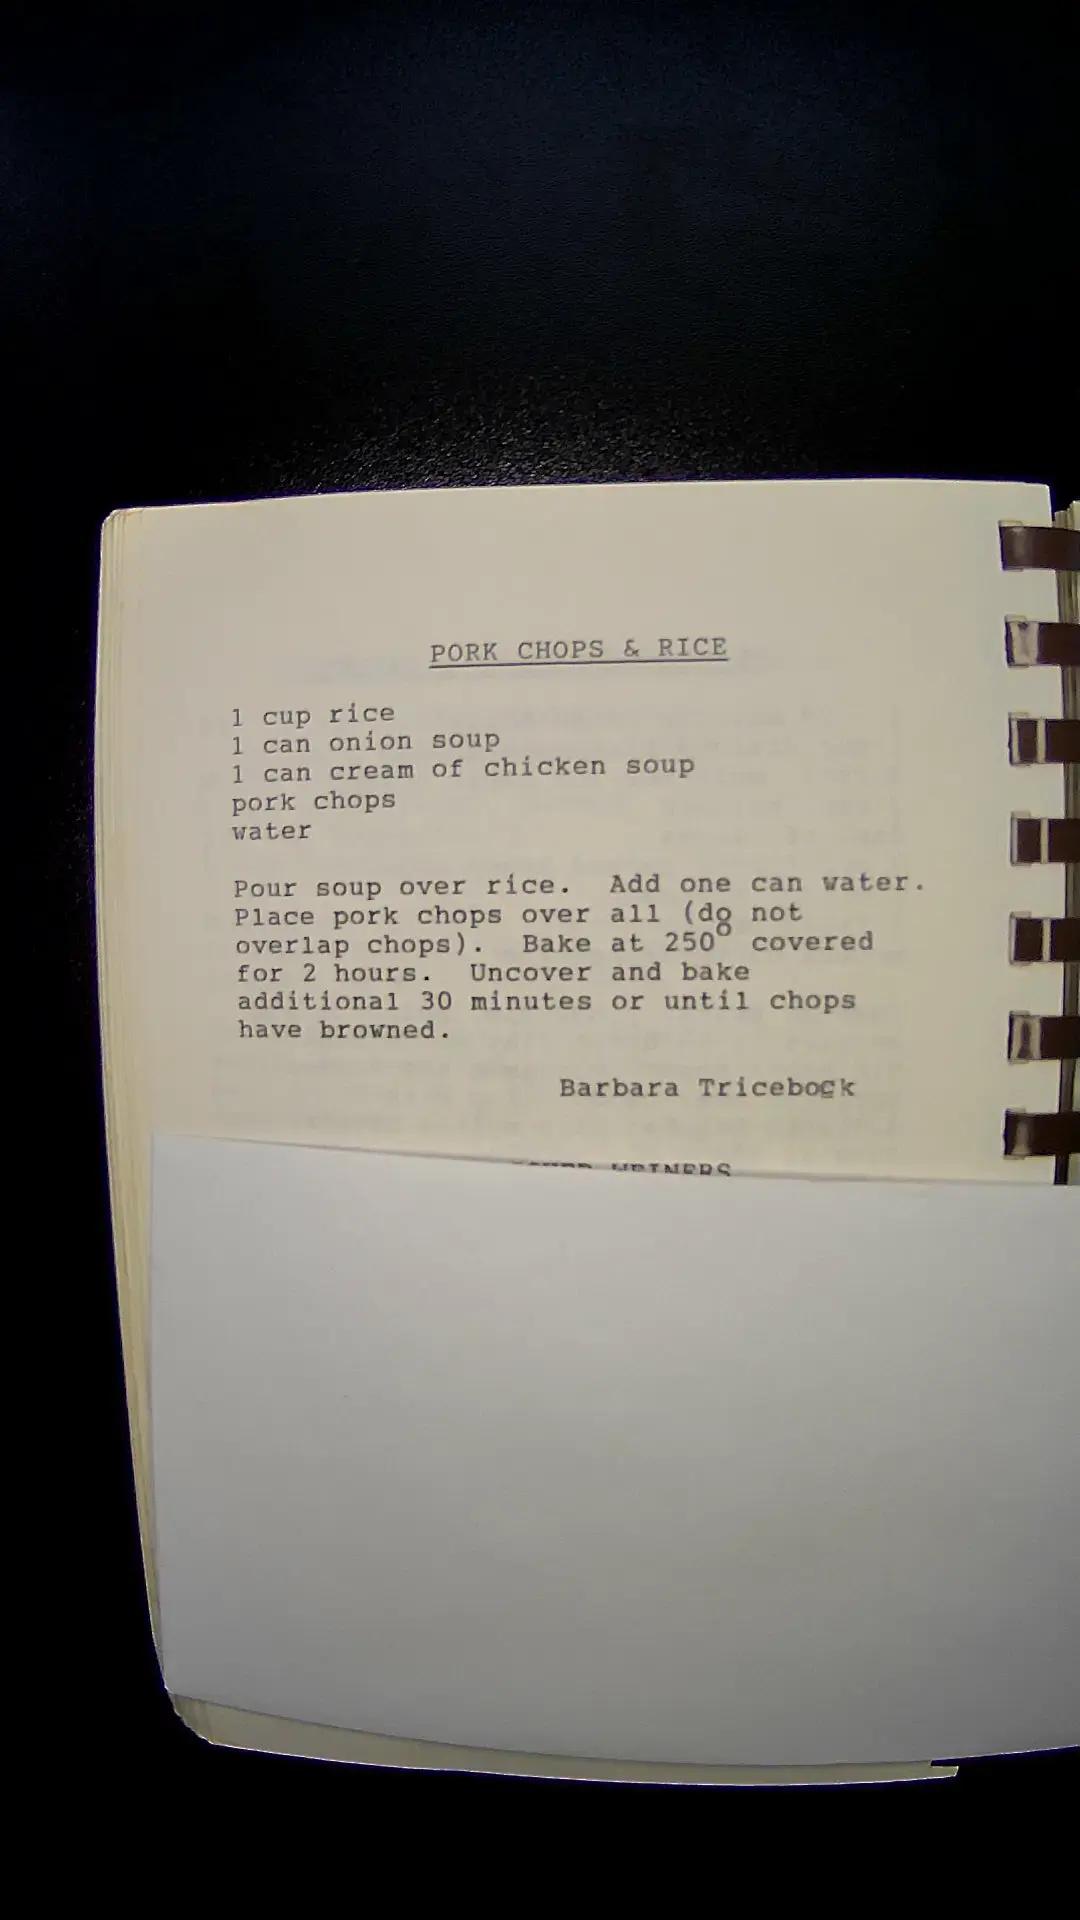 PORK CHOPS & RICE
1 cup rice
1 can onion soup
1 can cream of chicken soup
pork chops
water
Pour soup over rice. Add one can water.
Place pork chops over all (do not
overlap chops). Bake at 250° covered
for 2 hours. Uncover and bake
additional 30 minutes or until chops
have browned.
Barbara Tricebock
WEINERS